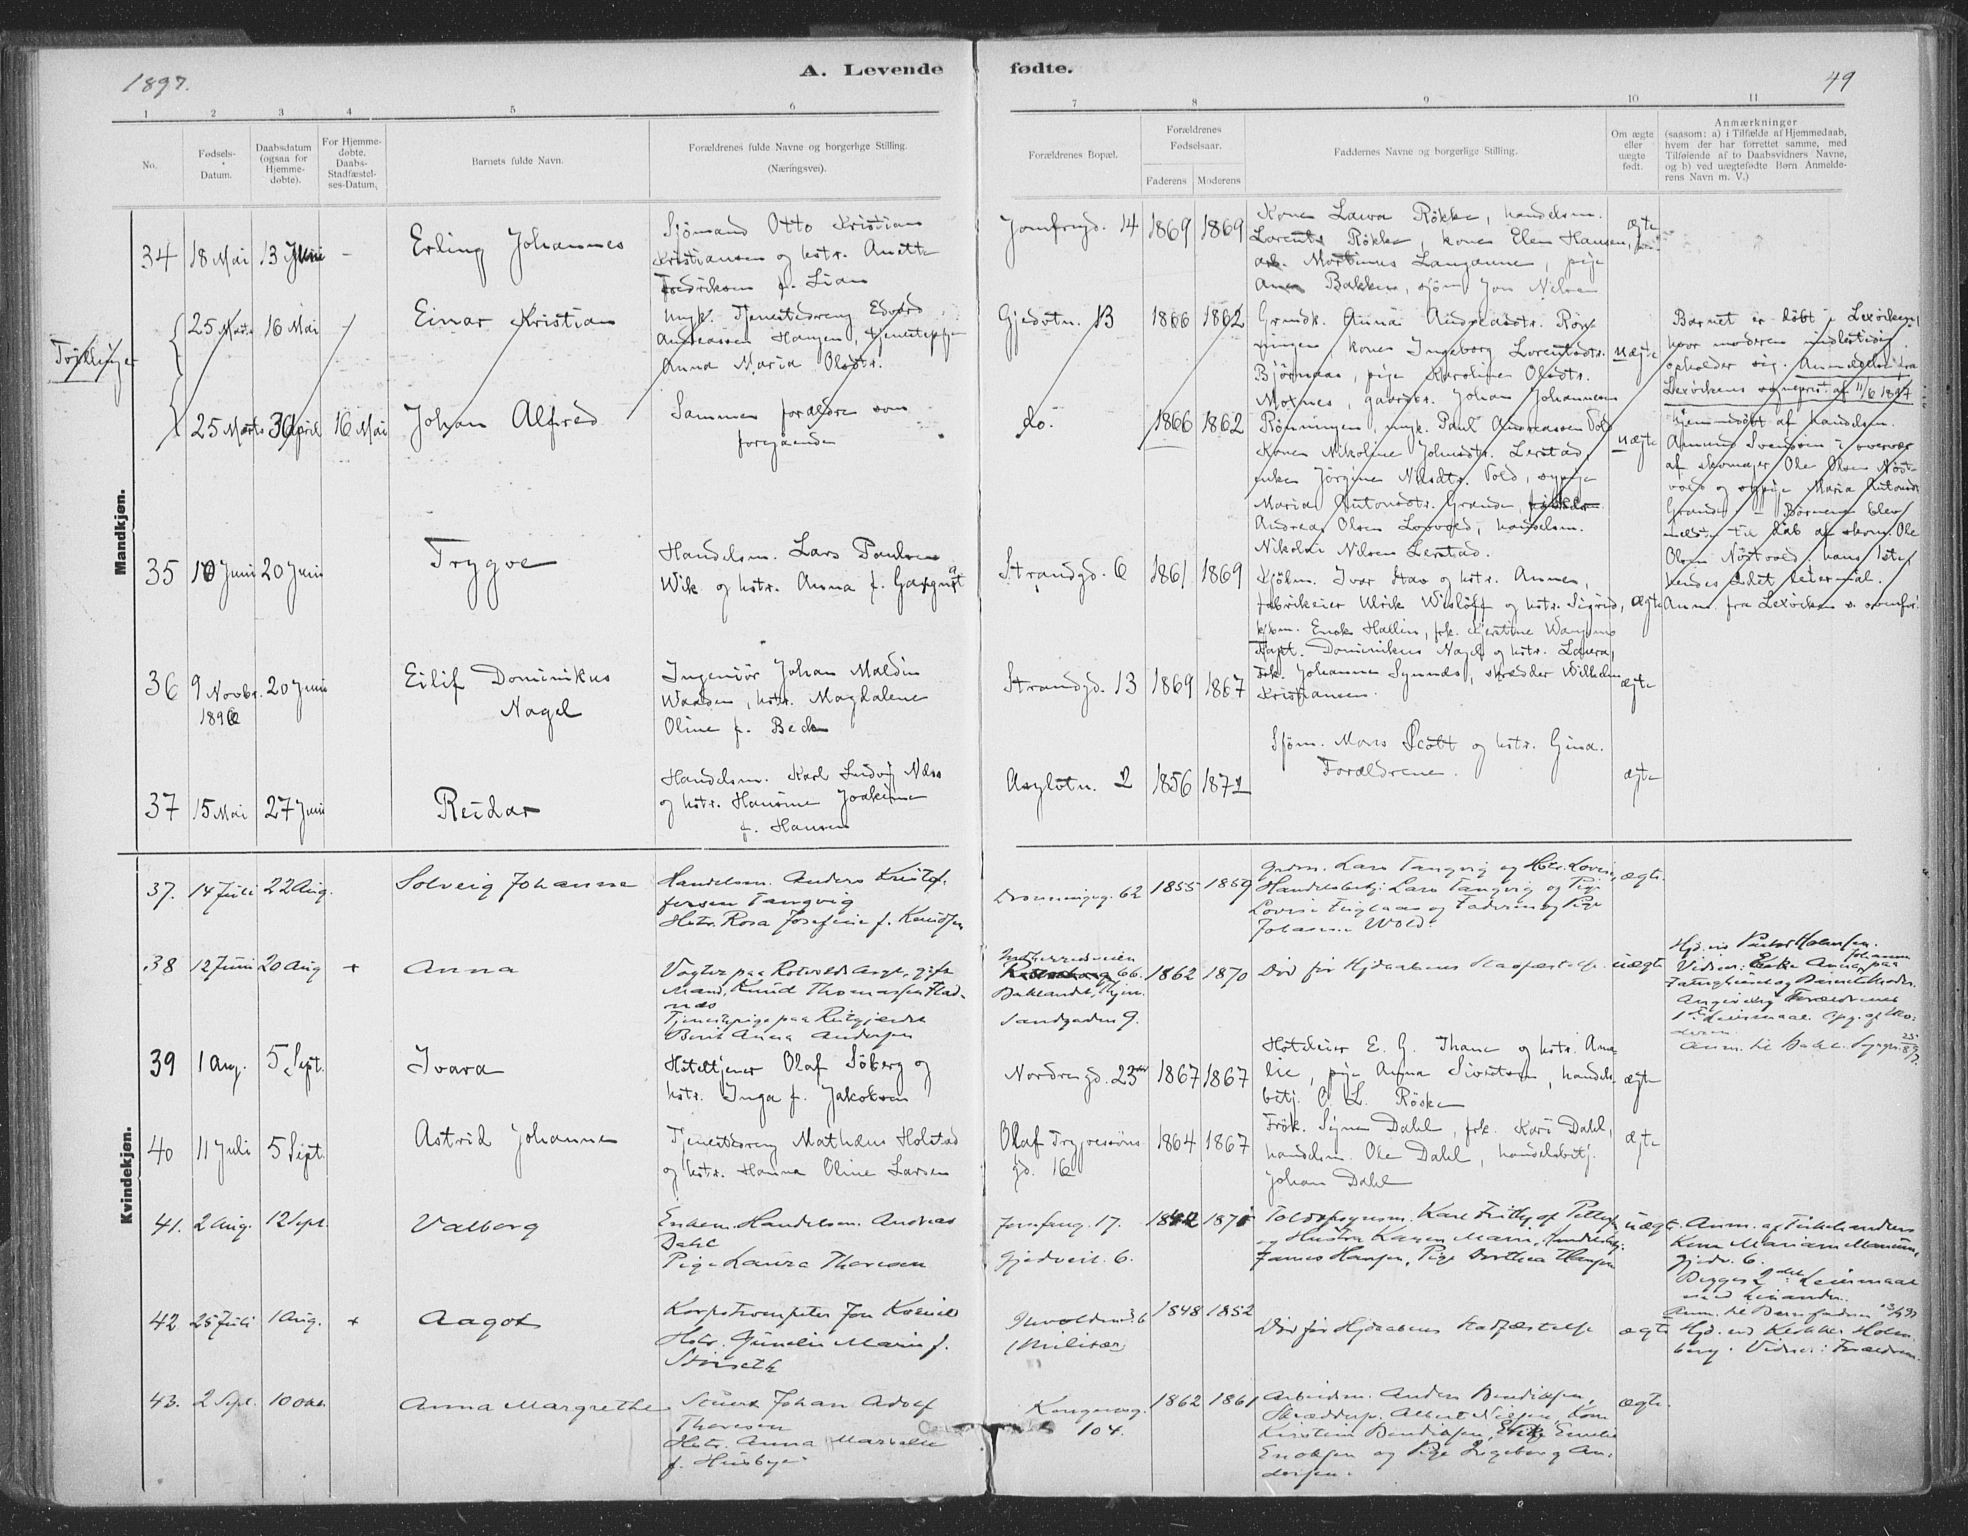 1897.
A. Levende fødte.
49
1 2 3 4 5 6 7 8 9 10 11
No.
Fødsels-Datum.
Daabsdatum (ogsaa for Hjemme-døbte).
For Hjemme-døbte, Daabs-Stadfæstel-ses-Datum.
Barnets fulde Navn.
Forældrenes fulde Navne og borgerlige Stilling.
(Næringsvei).
Forældrenes Bopæl.
Forældrenes Fødselsaar.
Faderens Moderens
Faddernes Navne og borgerlige Stilling.
Om ægte eller uægte født.
Anmærkninger
(saasom: a) i Tilfælde af Hjemmedaab,
hvem der har forrettet samme, med
Tilføiende af to Daabsvidners Navne,
og b) ved uægtefødte Børn Anmelde-
rens Navn m. V.)
Mandkjøn.
34 18 Mai 13 Juni - Erling Johannes
Sjømand Otto Kristian
Kristiansen og hstr. Anette
Fredriksen f. Lian
Jomfrugd. 14 1869 1869
Kone Laura Røkke, handelsm.
Lorents Røkke, kone Elen Hansen,
arb. Martinus Langanne, pige
Bakken, sjøm. Jon Nilsen
ægte
25 Marts 16 Mai - Einar Kristian
Tjenestedreng Edvard
Andreassen Haugen, tjenestepige
Anna Maria Olsdtr.
Gjedvtn. 13 1866 1862
Grndk. Anna Andreasdtr. Røn-
ningen, kone Ingeborg Lorentsdtr.
Bjørnaas, pige Karoline Olsdtr.
Moxnes, gaardbr. Johan Johannesen
uægte
Barnet er døbt i Lexviken,
hvor moderen midlertidig
opholder sig. Anmeldelse fra
Lexvikens sognepræst af 11/6 1897
25 Marts 30 April 16 Mai Johan Alfred
Samme forældre som
foregaaende
do. 1866 1862
Rønningen, ungk. Paul Andreassen Vold
Kone Nikoline Johnsdtr. Lerstad,
enke Jørgine Nilsdtr. Vold, sypige
Maria Antonsdtr. Grande,
Andreas Olsen, handelsm.
Nikolai Nilsen Lerstad.
uægte
Hjemmedøbt af handelsm.
Svendsen i overvær
af skomager Ole Olsen Nøst-
vold og sypige Maria Antonsdt.
Grande - Børnene blev
meldt til daab af skom. Ole
Olsen Nøstvold, hans 1ste,
hendes 2det leiermål.
Anm. fra Lexviken s. ovenfor.
35 10 Juni 20 Juni Trygve
Handelsm. Lars Paulsen
Wik og hstr. Anna f.
Strandgd. 6 1861 1869
Kjøbm. Ivar Stav og hstr. Anna,
fabrikeier Ulrik Wisløff og hstr. Sigrid,
kjøbm. Enok Hallin, frk.
ægte
36 9 Novbr. 1896 20 Juni Eilif Dominikus
Nagel
Ingeniør Johan Maldin
Waasen, hstr. Magdalene
Oline f. Beck
Strandgd. 13 1869 1867
Kapt. Dominikus Nagel og hstr. Laura,
Frk. Johanna, skrædder Wilhelm
Kristiansen.
ægte
37 15 Mai 27 Juni Reidar
Handelsm. Karl Ludvig Næss
og hstr. Hansine Joakime
f. Hansen
Asyltn. 2 1856 1872
Sjøm. Mons Scott og hstr. Gina.
Forældrene.
ægte
Kvindekjøn.
37. 14 Juli 22 Aug. Solveig Johanne
Handelsm. Anders Kristof-
fersen Tangvig
Hstr. Rosa Josefine f. Knudsen
Dronningeg. 62 1855 1859
Grdm. Lars Tangvig og Hstr. Lovise,
Handelsbetj. Lars Tangvig og Pige
Lovise og Faderen og Pige
Johanne Wold.
ægte.
38 12 Juni 20 Aug + Anna
Vogter paa Rotvold Asyl, gift
Mand, Knud Thomassen Flad-
næs
Tjenestepige paa Reitgjærdet
Berit Anna Andersen
Innherredsveien
66.
Baklandet, Hjem.
Sandgaden 9.
1862 1870
Død før Hjdaabens Stadfæstelse
uægte
Hjd. ved Pastor Holmsen.
Vidner: Enke Anna Johansen paa
Fattighuset og Barnets Moder.
Angivelig Forældrenes
1ste Leiermaal. Opg. af Mo-
deren.
39 1 Aug. 5 Sept. Ivara
Hoteltjener Olaf Søberg og
hstr. Inga f. Jakobsen
Nordregd. 23 1867 1867
Hoteleier E. G. Thane og hstr. Ama-
lie, pige Anna Sivertsen, handels-
betj. O. L. Røske
ægte
40 11 Juli 5 Sept. Astrid Johanne
Tjenestedreng Mathæus Holstad
og hstr. Hanna Oline Larsen
Olaf Trygvesøns
gd. 16
1864 1867
Frøk. Signe Dahl, frk. Kari Dahl,
handelsm. Ole Dahl, handelsbetj.
Johan Dahl
ægte
41. 2 Aug. 12 Sept. Valborg
Enkem. Handelsm. Andreas
Dahl
Pige Laura Theresen
Jomfrug. 17.
Gjedveit. 6.
1842 1871
og Hustru Karen Marie, Handelsbetj.
James Hansen, Pige Dorthea Hansen
uægt.
Kone Mariane
Gjedv. 6.
Begges 2det Leiermaal
med hinanden.
42. 25 Juli 1 Aug. + Aagot
Korpstrompeter Jon
Hstr. Gunelie Marie f.
Stinseth
(Militær)
1848 1852
Død før Hjdaabens Stadfæstelse
ægte
Hjd. ved Klokker Holm-
berg. Vidner: Forældrene.
43. 2 Sept. 10 Okt. Anna Margrethe
Stuert Johan Adolf
Thoresen
Hstr. Anna
f. Husbye
Kongensg.
104.
1862 1861
Arbeidsm. Anders Bendiksen,
Skrædders. Albert Nilsen, Kone
Kirstine Bendiksen, Enke Emelie
Enoksen og Pige Ingeborg An-
dersen.
ægte.